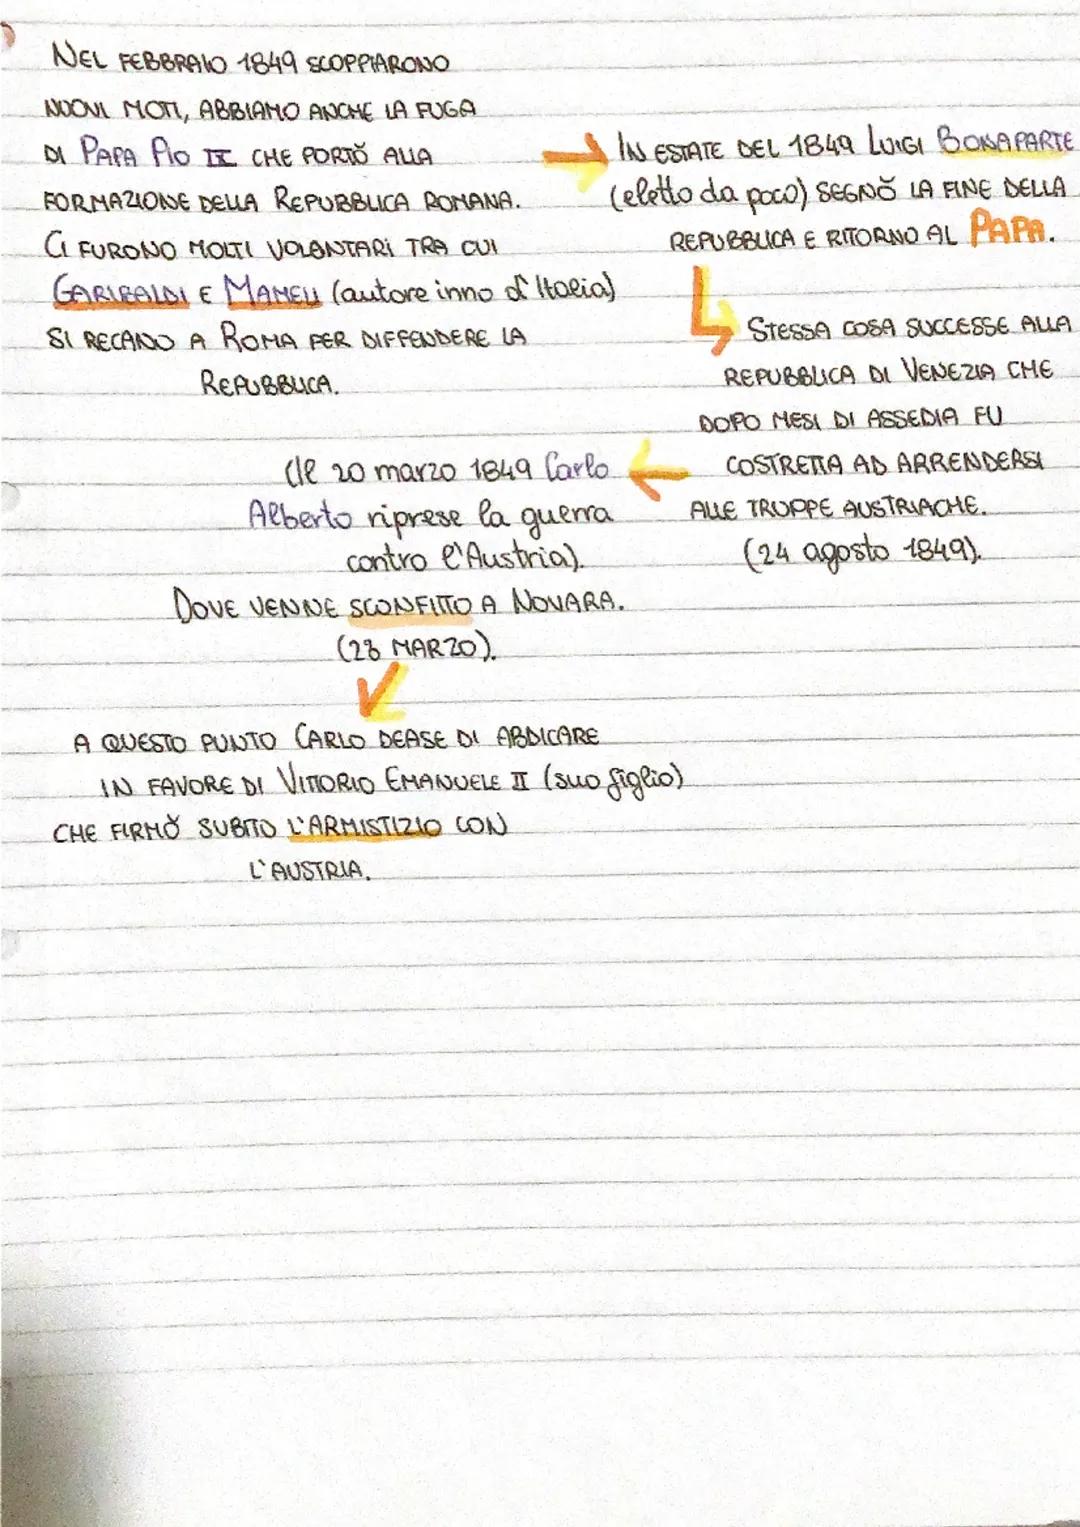 NEL FEBBRAIO 1849 SCOPPIARONO
NUOVI MOTI, ABBIAMO ANCHE LA FUGA
DI PAPA PIO IX CHE PORTÒ ALLA
FORMAZIONE DELLA REPUBBLICA ROMANA.
CI FURONO MOLTI VOLONTARI TRA CUI
GARIBALDI E MAMELI (autore inno d'Italia)
SI RECANO A ROMA PER DIFFENDERE LA
REPUBBLICA.
IN ESTATE DEL 1849 LUIGI BONAPARTE
(eletto da poco) SEGNÒ LA FINE DELLA
REPUBBLICA E RITORNO AL PAPA.
STESSA COSA SUCCESSE ALLA
REPUBBLICA DI VENEZIA CHE
DOPO MESI DI ASSEDIA FU
COSTRETTA AD ARRENDERSI
ALLE TRUPPE AUSTRIACHE.
(24 agosto 1849).
(Il 20 marzo 1849 Carlo
Alberto riprese la guerra
contro l'Austria).
DOVE VENNE SCONFITTO A NOVARA.
(23 MARZO).
A QUESTO PUNTO CARLO DEASE DI ABDICARE
IN FAVORE DI VITTORIO EMANUELE II (suo figlio)
CHE FIRMÒ SUBITO L'ARMISTIZIO CON
L'AUSTRIA.